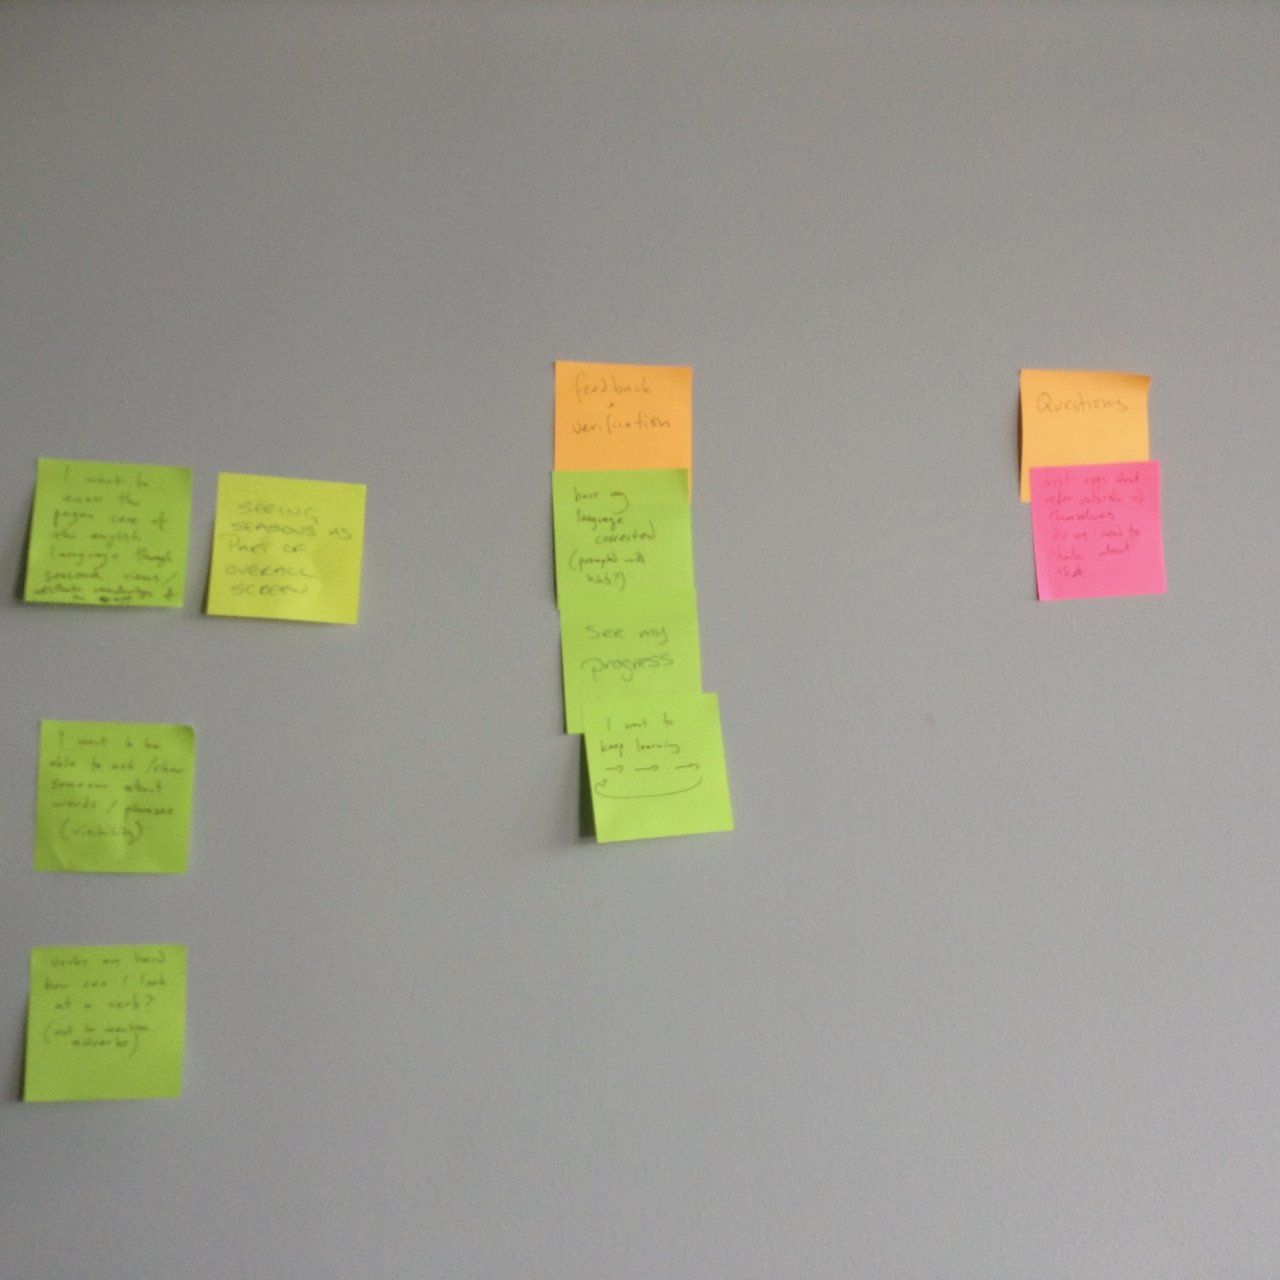 I want to
access the
pagan core of
the english
language through
seasonal views/
of
SEEING
SEASONS AS
PART OF
OVERALL
SCREEN
I want to be
able to ask /show
someone about
words / phrases
(visibility)
verbs are hard
how can I look
at a verb?
(not to mention
adverbs)
feedback
+
verification
have my
language
corrected
(prompted with
hints?)
See my
progress
I want to
keep learning
→ → →
Questions
most apps don't
refer outside of
themselves
do we need to
think about
that